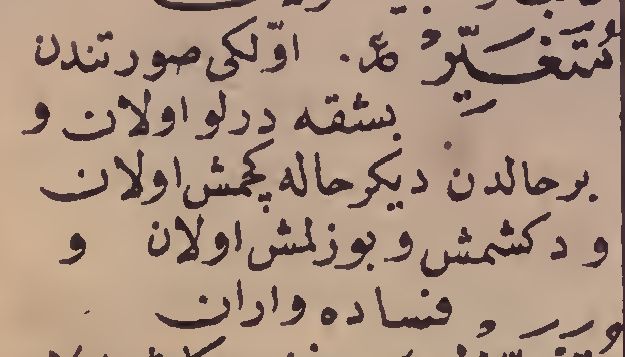 مُتَغَيِّرْ ع. اوّلكى صورتندن
بشقه درلو اولان و
برحالدن ديكر حاله كچمش اولان
و دكشمش و بوزلمش اولان و
فساده واران